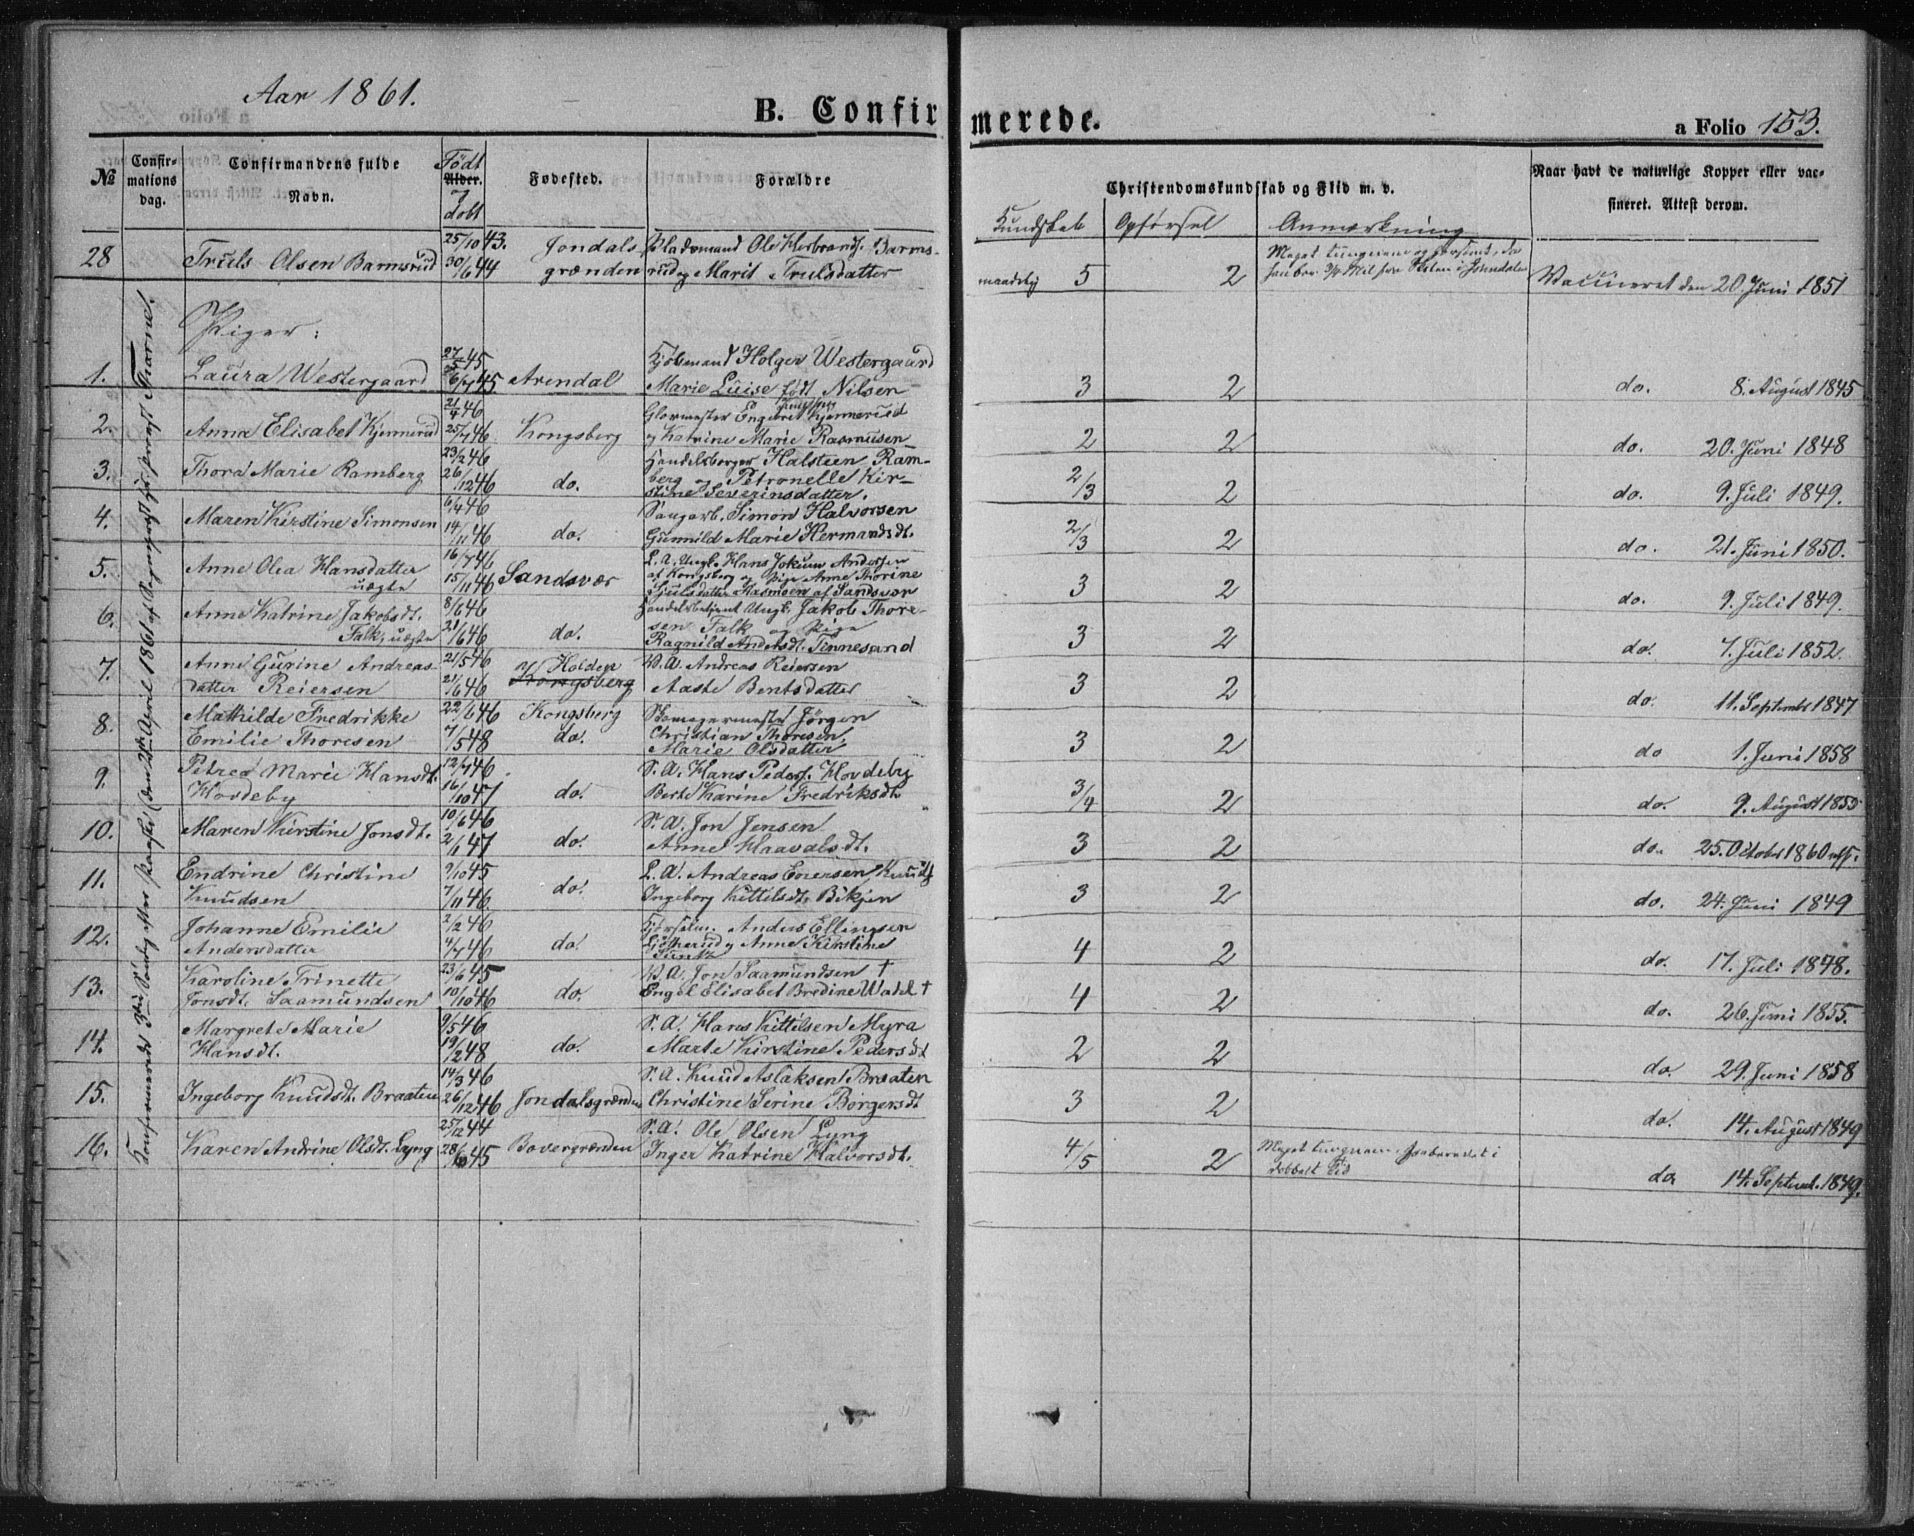 Aar 1861.
B. Confirmerede.
a Folio 153.
№
Confirmations dag.
Confirmandens fulde Navn.
Födt
Alder.
döbt
Fødested.
Forældre
Christendomskundskab og Flid m. v.
Kundskab
Opförsel
Anmærkning
Naar havt de naturlige Kopper eller vaccineret. Attest derom.
28 Truls Olsen Barmsrud 25/10 43. 30/6 44 Jondalsgrænden Pladsmand Ole Herbrands. Barmsrud og Marit Trulsdatter
maadelig 5 2 Meget tungnem Vaccineret den 20. Juni 1851
Confirmerede
Piger:
1. Laura Westergaard 45 45 Arendal Kjöbmand Holger Westergaard
Marie Luise född Nilsen 3 2 do. 8. August 1845
2. Anna Elisabet Kjennerud 21/4 46 25/7 46 Kongsberg Glarmester Engebret Knudsen Kjennerud
og Katrine Marie Rasmusen 2 2 do. 20. Juni 1848
3. Thora Marie Ramberg 23/2 46 26/12 46 do. Handelsborger Halsteen Ramberg og Petronelle Kirstine Severinsdatter. 2/3 2 do. 9. Juli 1849.
4. Maren Kirstine Simonsen 6/4 46 14/11 46 do. Simon Halvorsen
Gunnild Marie Hermandsdt. 2/3 2 do. 21. Juni 1850.
5. Anne Olea Hansdatter uægte 16/7 46 15/11 46 Sandsvær Ungk. Hans Jokum Andersen
af Kongsberg og Pige Anne Thorine
3 2 do. 9. Juli 1849.
6. Anne Katrine Jakobsdt. Falk, uægte 8/6 46 21/6 46 do. Handelsbetjent Ungk. Jakob Thoresen Falk og Pige
Ragnild Andersdt. Tinnesand 3 2 do. 7. Juli 1852.
7. Anne Gurine Andreasdatter Reiersen 21/5 46 21/6 46 Holden
Kongsberg
Andreas Reiersen
Aaste Bentsdatter 3 2 do. 11. September 1847
8. Mathilde Fredrikke
Emilie Thoresen 22/6 46 7/5 48 Kongsberg
do. Skomagermester Jörgen
Christian Thoresen.
Marie Olsdatter 3 2 do 1. Juni 1858
9. Petrea Marie Hansdt.
Hovdeby 12/7 46 16/10 47 do. S. A. Hans Peders. Hovdeby
Berte Karine Fredriksdt. 3/4 2 do. 9. August 1855
10. Maren Kirstine Jonsdt. 10/6 46 2/1 47 do. S. A. Jon Jensen
Anne Haavalsdt. 3 2 do. 25. October 1860
11. Endrine Christine
Knudsen 9/10 45 7/11 46 do. Andreas Enersen Knuds
Ingeborg Kittilsdt. Bikjen 3 2 do. 24. Juni 1849
12. Johanne Emilie
Andersdatter 2/2 46 4/7 46 do. Anders Ellingsen
og Anne Kirstine
4 2 do. 17. Juli 1848.
13. Karoline Trinette
Jonsdt. Saamundsen 23/6 45 10/10 46 do. Jon Saamundsen †
Engel Elisabet Bredine Wadel † 4 2 do. 26. Juni 1855.
14. Margrete Marie
Hansdt. 9/5 46 19/2 48 do. S. A. Hans Kittilsen Myra
Marte Kirstine Pedersdt 2 2 do. 29. Juni 1858
15. Ingeborg Knudsdt. Braaten 14/3 46 26/12 46 Jondalsgrænden S. A. Knud Aslaksen Braaten
Christine Serine Börgersdt 3 2 do. 14. August 1849
16. Karen Andrine Olsdt. Lyng 25/12 44 28/6 45 Bævergrænden S. A. Ole Olsen Lyng
Inger Katrine Halvorsdt. 4/5 2 Meget tungnem
dobbelt Tid do. 14. Septemb. 1849.